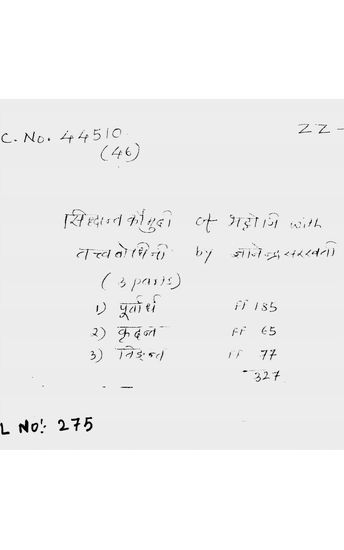 C. No. 44510.
(46)
ZZ-
सिद्धान्तकौमुदी of भट्टोजि with
तत्त्वबोधिनी by ज्ञानेन्द्रसरस्वती
(3 parts)
1) पूर्वार्ध ff 185
2) कृदन्त ff 65
3) तिङन्त ff 77
327
L No: 275